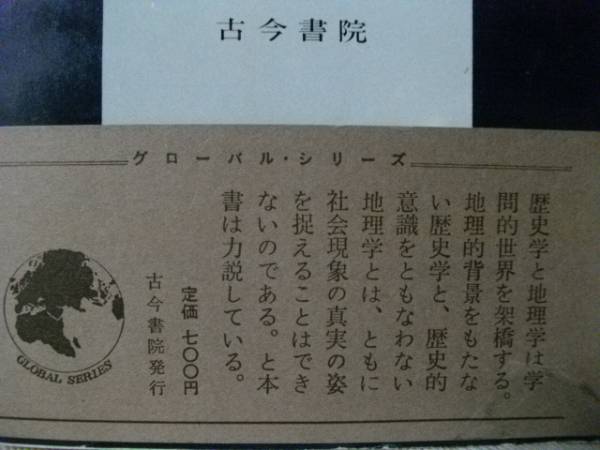 古今書院
グローバル・シリーズ
歴史学と地理学は学
問的世界を架橋する。
地理的背景をもたな
い歴史学と、歴史的
意識をともなわない
地理学とは、ともに
社会現象の真実の姿
を捉えることはでき
ないのである。と本
書は力説している。
定価 七〇〇円
古今書院発行
GLOBAL SERIES